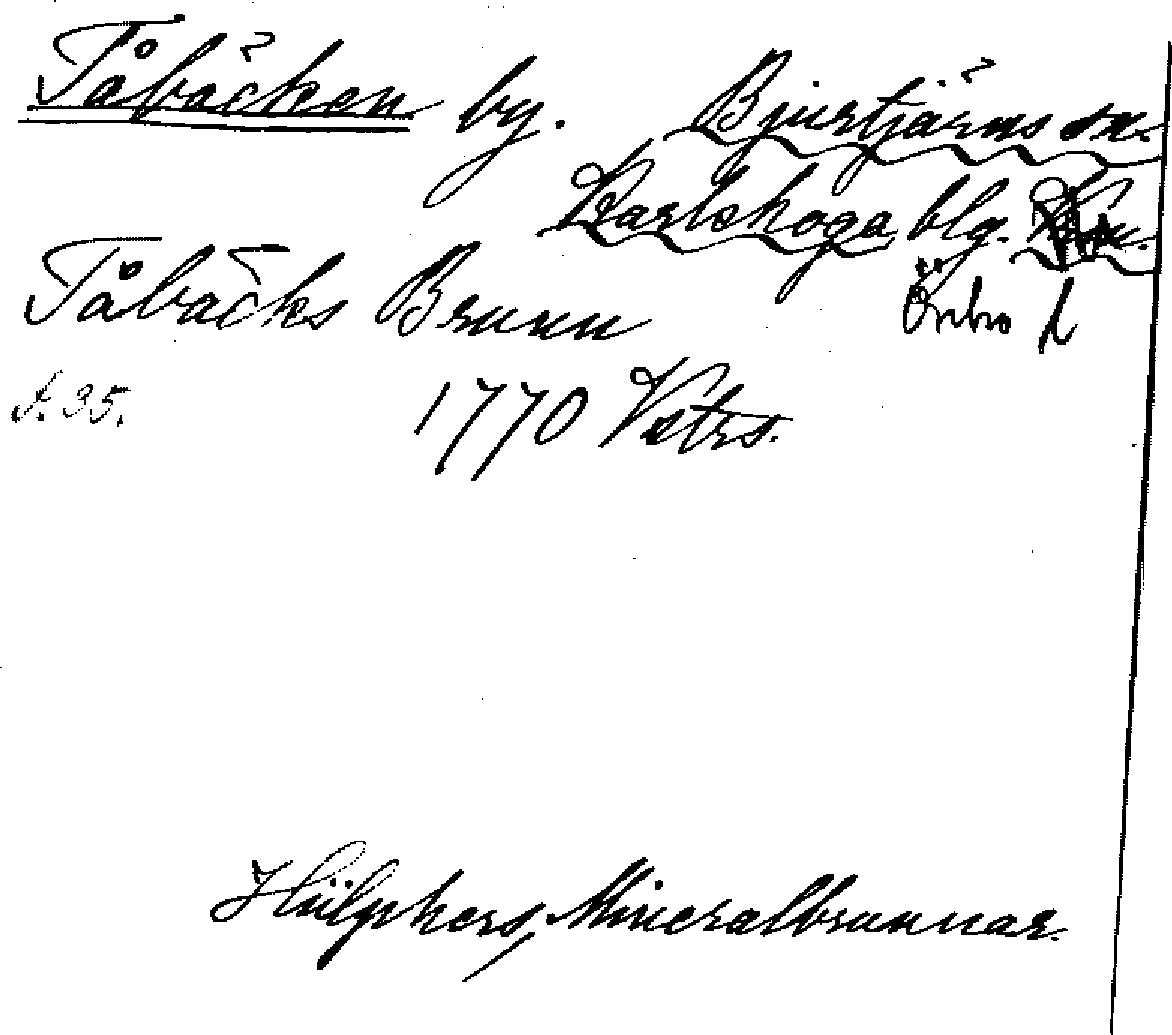 Tåbäcken by. Bjurtjärns sn.
Karlskoga blg.
Tåbäcks Brunn Örebro l
s. 35. 1770 Vstrs.
Hülphers, Mineralbrunnar.